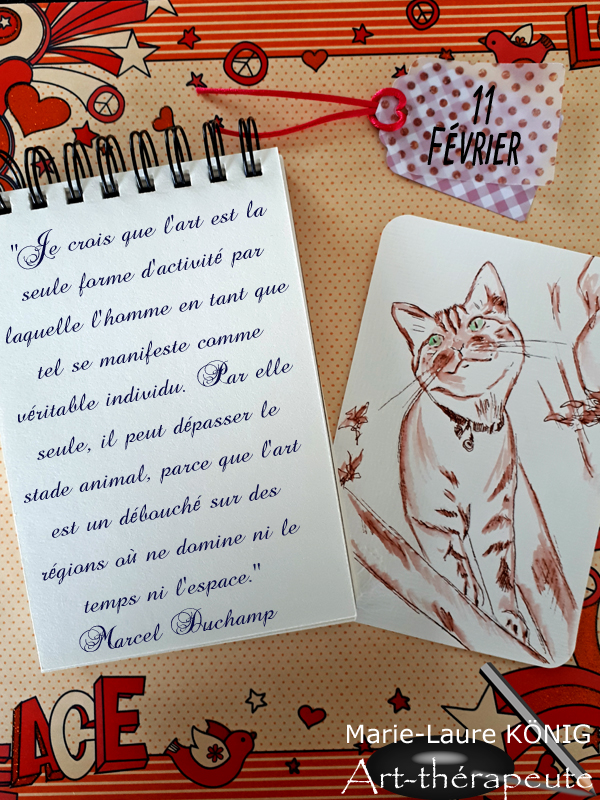 11
FÉVRIER
"Je crois que l'art est la
seule forme d'activité par
laquelle l'homme en tant que
tel se manifeste comme
véritable individu. Par elle
seule, il peut dépasser le
stade animal, parce que l'art
est un débouché sur des
régions où ne domine ni le
temps ni l'espace."
Marcel Duchamp
ACE
Marie-Laure KÖNIG
Art-thérapeute